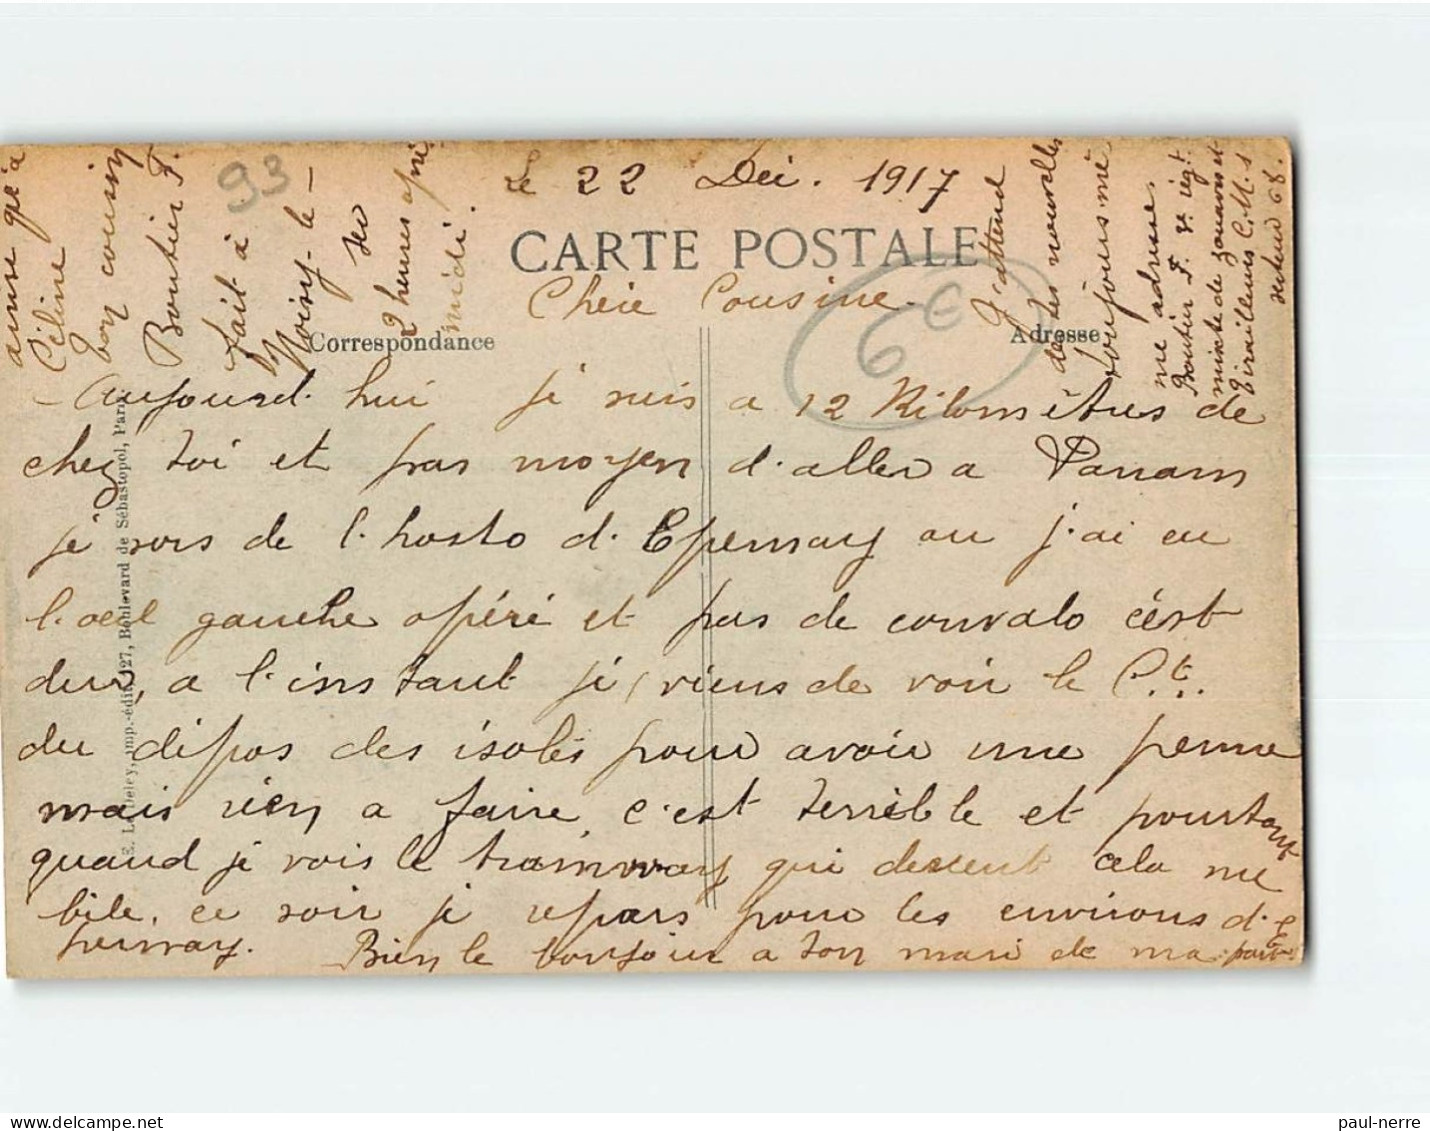 Le 22 Dei. 1917
CARTE POSTALE
Chere Cousine
Correspondance
Adresse
Aujourd'hui je suis a 12 Kilomètres de
chez toi et pas moyen d'aller a Panam
je sors de l'hosto d'Epernay ou j'ai eu
l'oeil gauche opéré et pas de convalo c'est
dur, a l'instant je viens de voir le Ct.
du dépos des isolés pour avoir une perme
mais rien a faire, c'est terrible et pourtant
quand je vois le tramway qui descent cela me
bile, ce soir je repars pour les environs d'E
pernay. Bien le bonjour a ton mari de ma part
ainsi qu'a
Céline
ton cousin
Boutier F.
fait à
Noisy-le-
sec
2 heures apré
midi.
J'attend
de tes nouvelles
toujours mê
me adresse
Boutier F. regt
mixte de zouaves et
tirailleurs C.M.1
secteur 68.
93
6€
E. L. Deley, imp.-édit., 127, Boulevard de Sébastopol, Paris.
paul-nerre